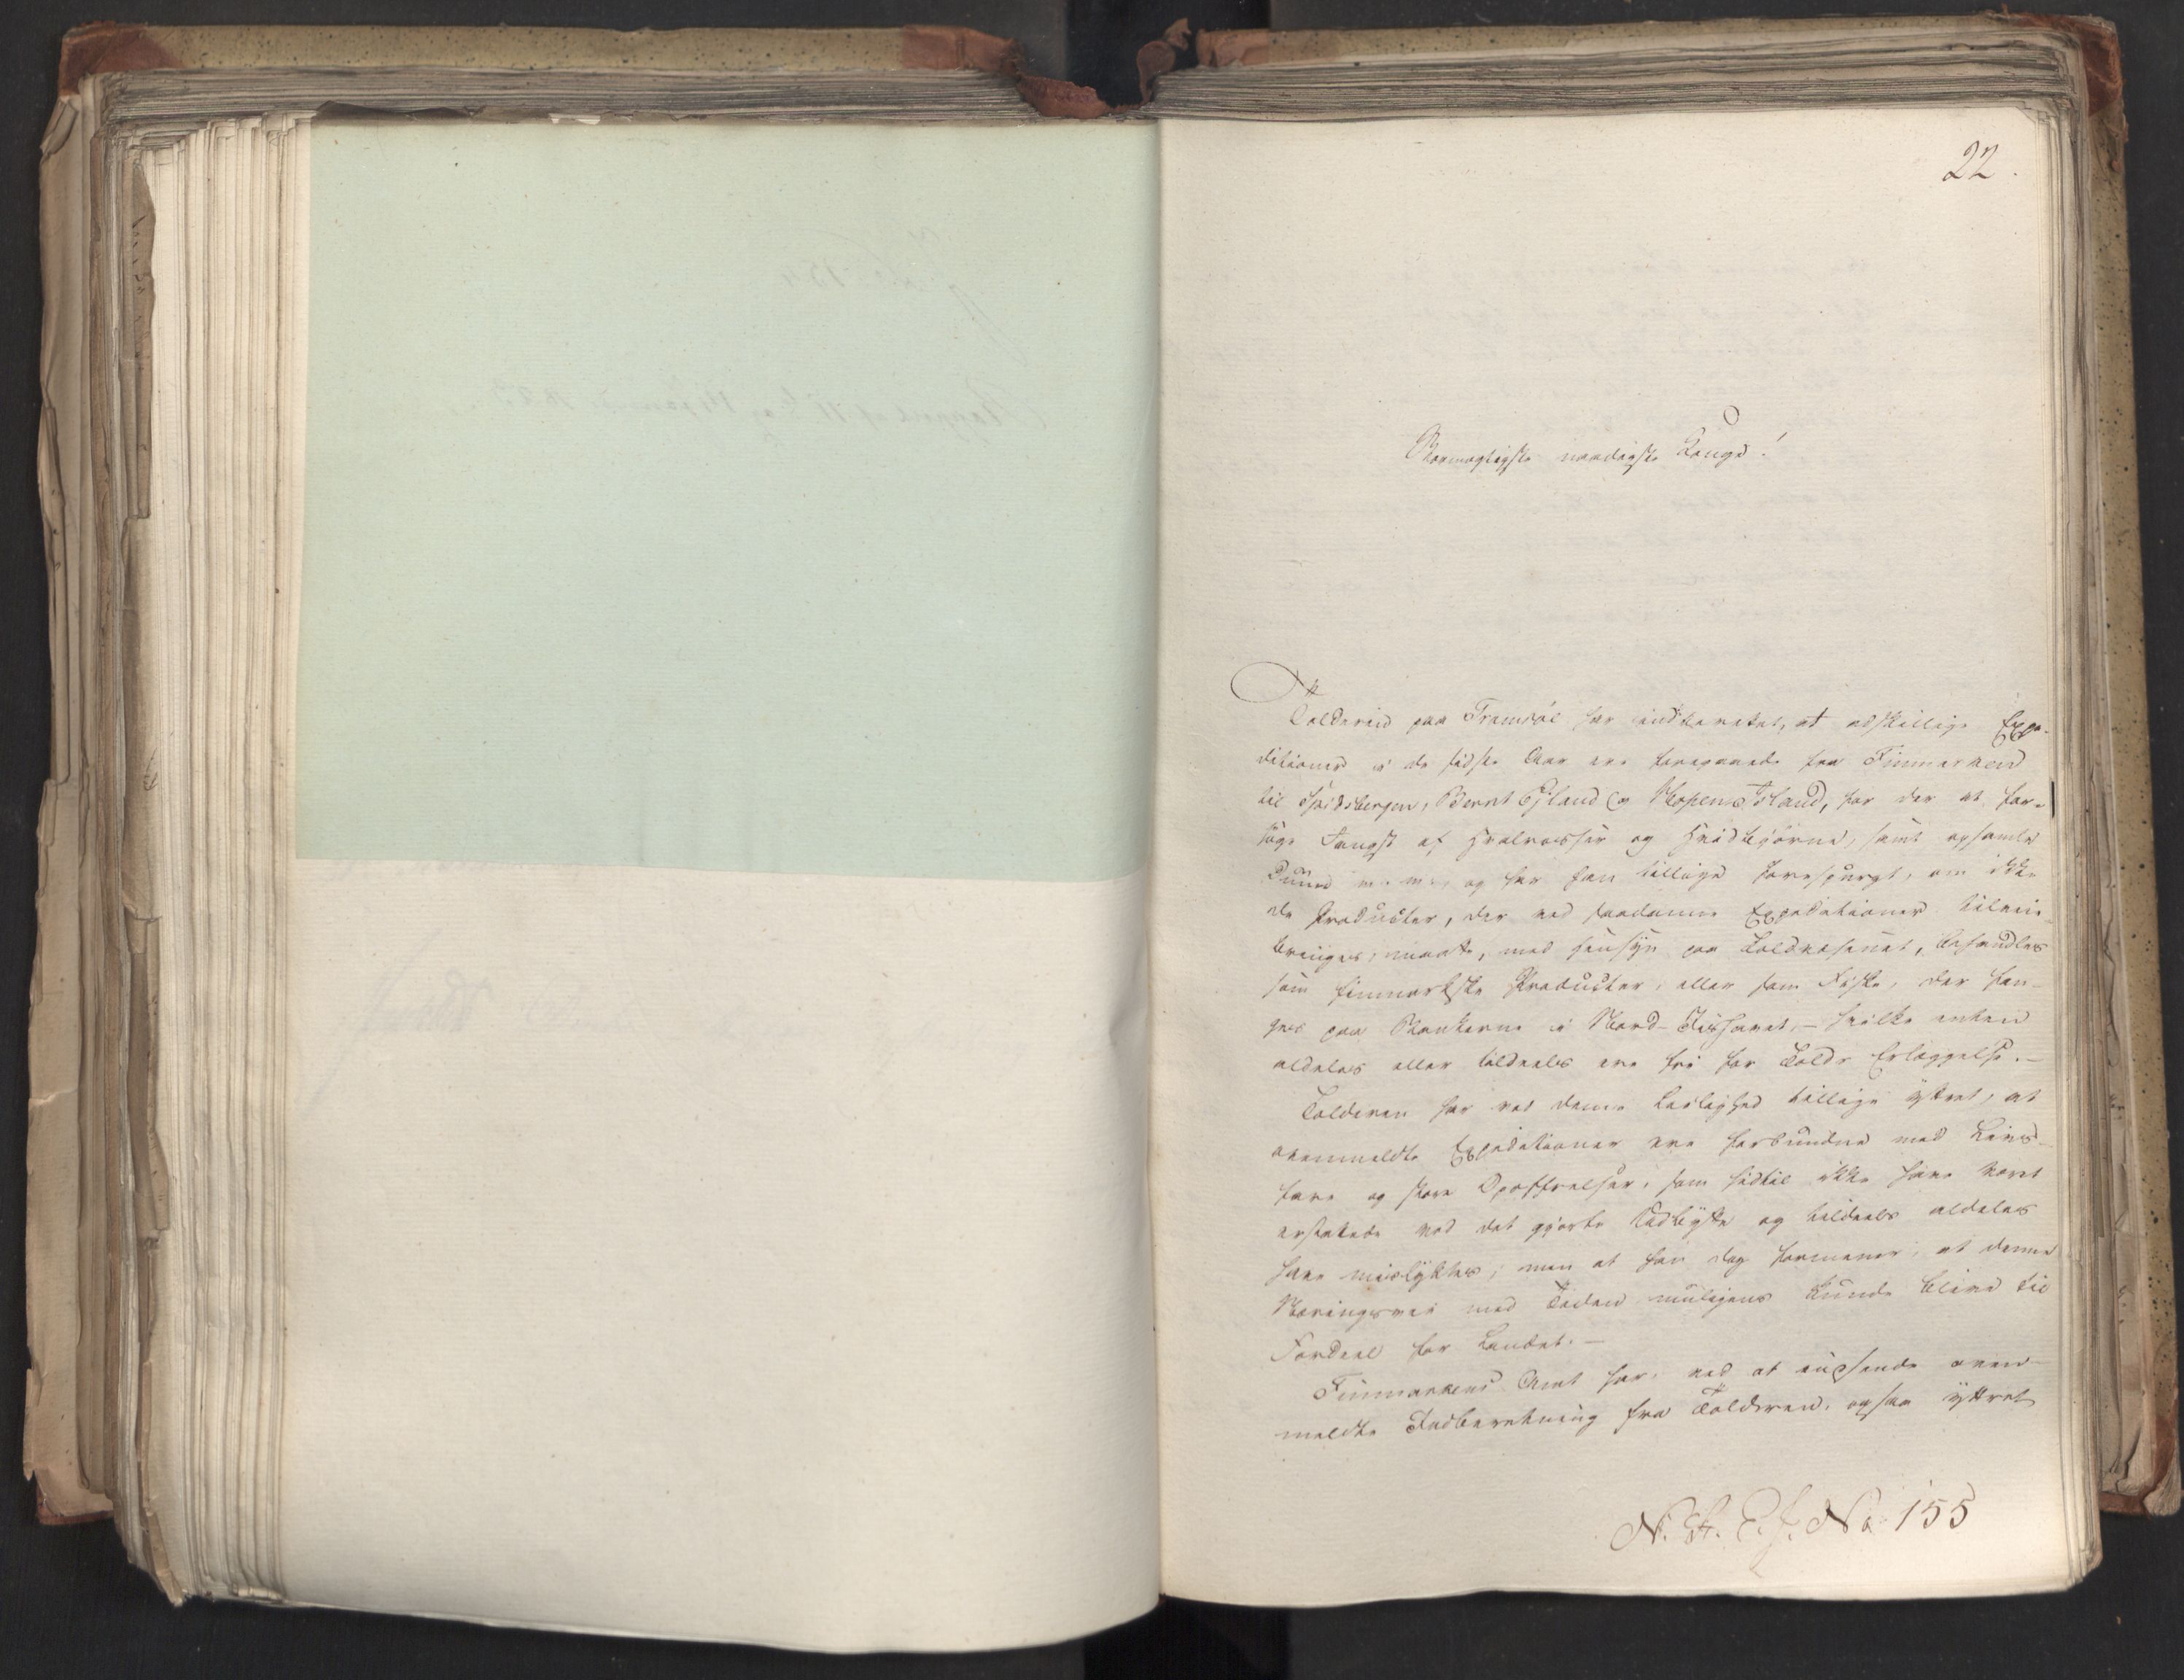 22.
Stormægtigste naadigste Konge!
Tolderen paa Tromsöe har indberettet, at adskillige Expe-
ditioner i de sidste Aar ere foregaaede fra Finmarken
til Spidsbergen, Beeren Eyland og Hopens Eiland, for der at for-
söge Fangst af Hvalrosser og Hvidbjörne, samt opsamle
Duun m. m., og har han tillige forespurgt, om ikke
de Producter, der ved saadanne Expeditioner tilveie-
bringes, maatte, med Hensyn paa Toldvæsenet, behandles
som finmarkske Producter, eller som Fiske, der fan-
ges paa Bankerne i Nord-Iishavet, – hvilke enten
aldeles eller tildeels ere frie for Tolds Erlæggelse. –
Tolderen har ved denne Leilighed tillige yttret, at
ovenmeldte Expeditioner ere forbundne med Livs-
fare og store Opoffrelser, som hidtil ikke have været
erstattede ved det gjorte Udbytte og tildeels aldeles
have mislykkes; men at han dog formener, at denne
Næringsvei med Tiden muligens kunde blive til
Fordeel for Landet. –
Finmarkens Amt har, ved at indsende oven-
meldte Indberetning fra Tolderen, ogsaa yttret
N. St. E. J. No 155